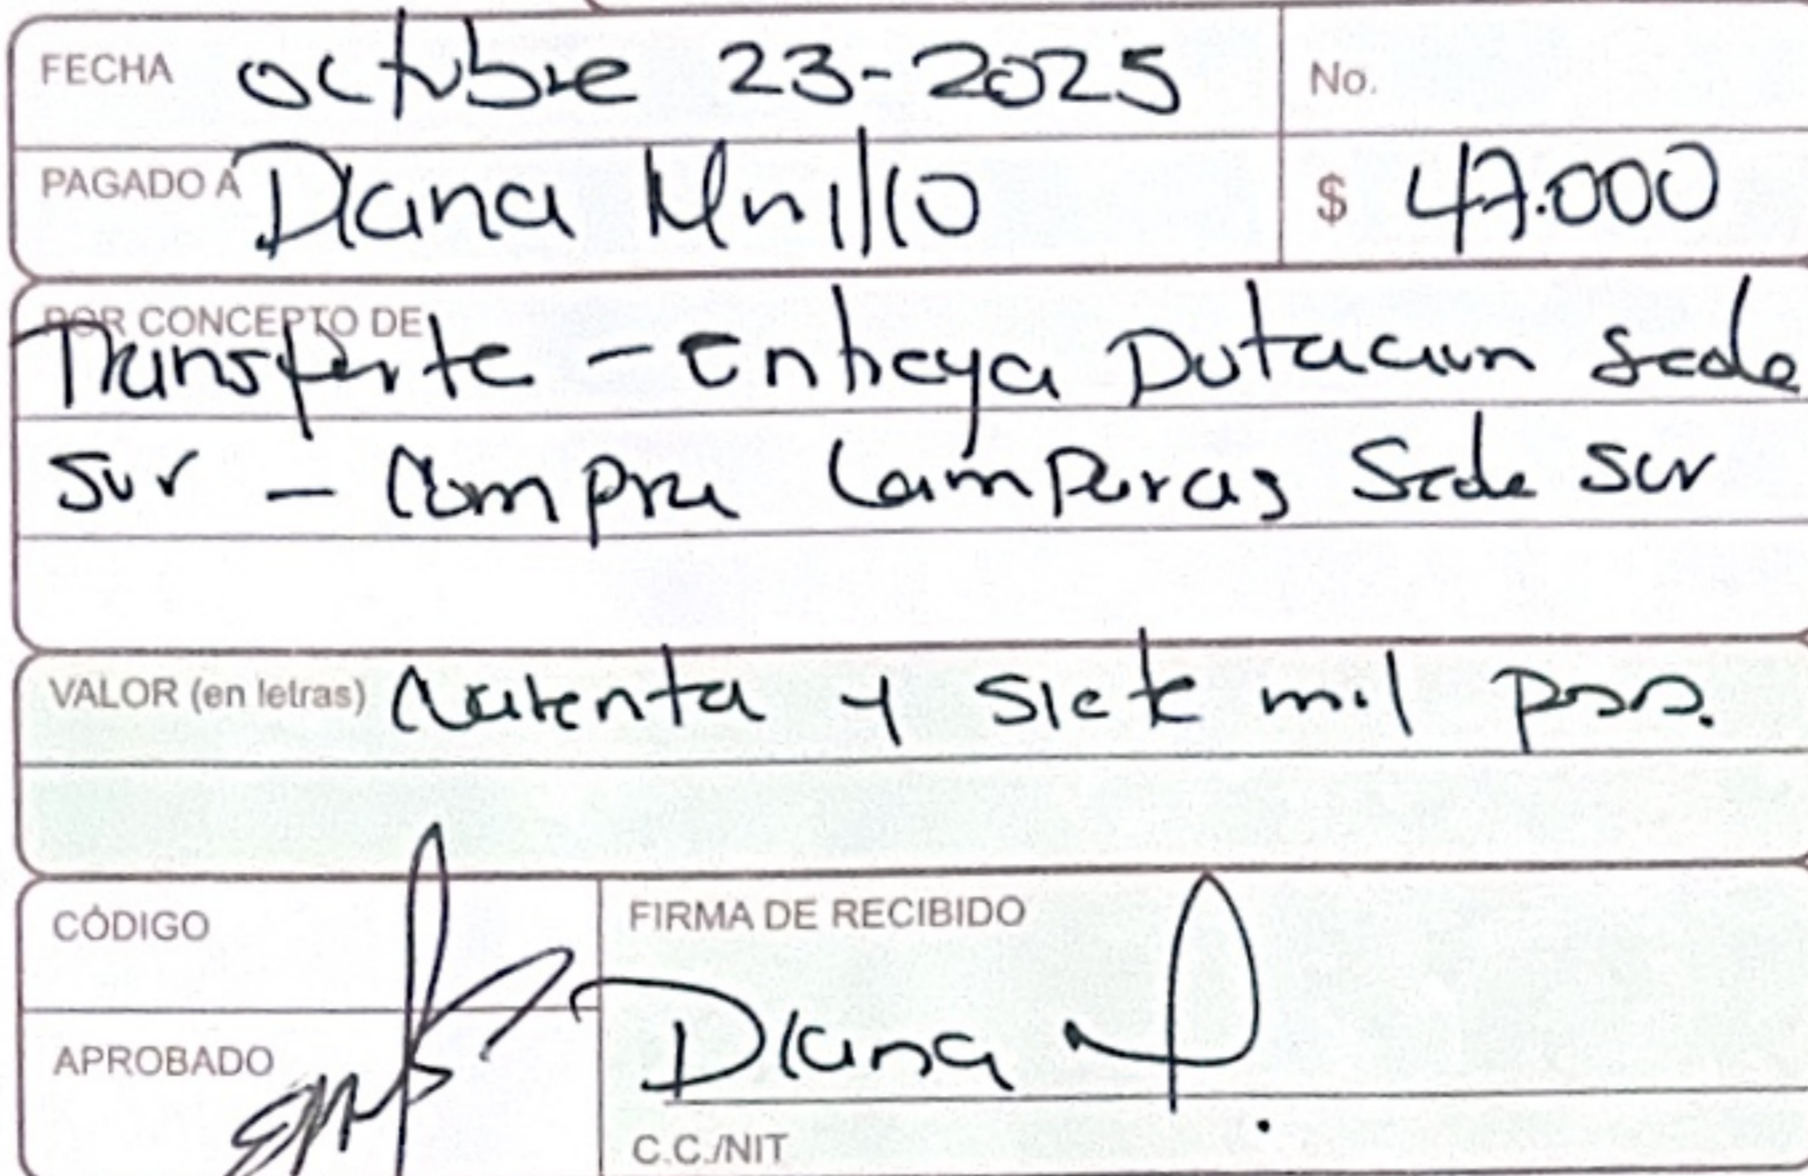 FECHA octubre 23-2025 No.
PAGADO A Diana Murillo $ 47.000
POR CONCEPTO DE
Transporte - Entrega Dotacion sede
sur - Compra Lamparas Sede sur
VALOR (en letras) Cuarenta y siete mil pesos.
CÓDIGO
FIRMA DE RECIBIDO
APROBADO
Diana
C.C./NIT